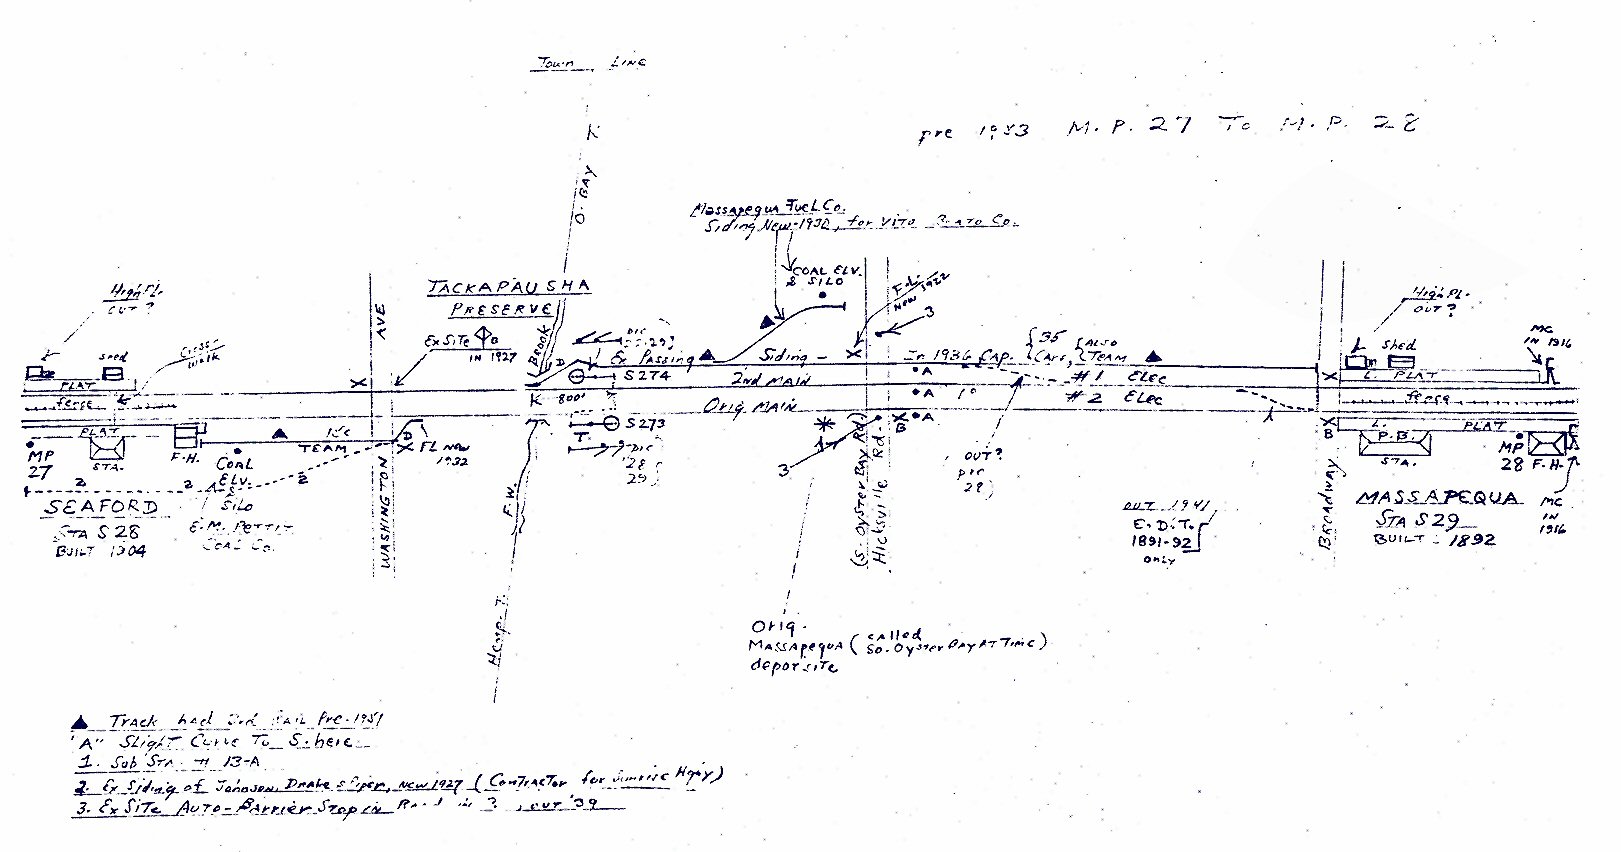 Town LINE
pre 1953 M.P. 27 To M.P. 28
O. BAY T.
Massapequa Fuel Co.
Siding New-1930, for Vito
COAL ELV.
& SILO
F.L.
NEW 1922
3
High Pl.
OUT?
AVE
TACKAPAUSHA
PRESERVE
Ex Site
IN 1927
BROOK
D
High Pl.
OUT?
MC
IN 1916
shed
Cross-
walk
Shed
Ex Passing Siding -
In 1936 Cap. 35 Cars, ALSO TEAM
PLAT
S274
2nd MAIN
A
#1 Elec
L. PLAT
fence
K 800'
A
1°
#2 Elec
fence
Orig. MAIN
S273
B
A
PLAT
STA.
F.H.
TEAM
D
FL NEW
1932
T.
1
B
L. PLAT
P.B.
STA.
MP
28
F.H.
MP
27
COAL
ELV.
&
SILO
E.M. PETTIT
COAL CO.
2 2 2
'28
29
3
OUT?
pre
28
SEAFORD
STA S 28
BUILT 1904
WASHINGTON
F.W.
Hemp. T.
(S. OYSTER BAY Rd)
Hicksville Rd.
OUT 1941
E.D.T.
1891-92
only
BROADWAY
MASSAPEQUA
STA S 29
BUILT - 1892
MC
IN
1916
Orig.
MASSApequA (called
So. Oyster BAY AT TIME)
depot site
▲ Track had 3rd RAIL Pre-1951
"A" Slight Curve To S. here
1. Sub Sta. # 13-A
2. Ex Siding of Johnson, Drake & Piper, New 1927 (Contractor for Sunrise Hgwy)
3. Ex Site Auto-Barrier Stop in Road in ?, OUT '39